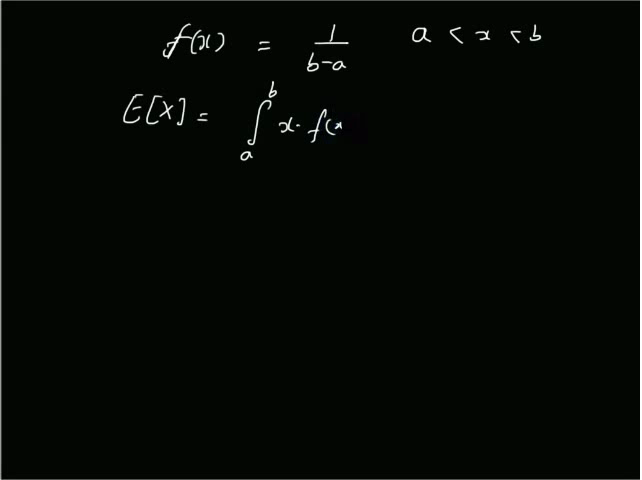 f(x) = 1/(b-a) a < x < b
E[X] = ∫_a^b x· f(x